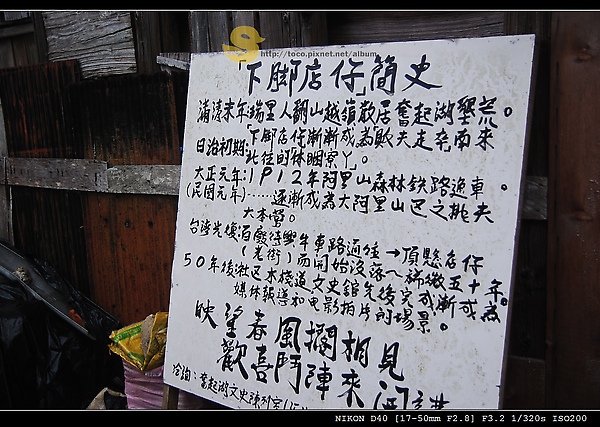 http://toco.pixnet.net/album
「下脚店仔」簡史
清溱末年瑞里人翻山越嶺散居奮起湖墾荒。
日治初期:「下脚店仔漸漸成為
走卒南來
北往的休睏寮丫」。
大正元年:1912年阿里山森林鉄路通車。
(民國元年)……逐漸成為大阿里山区之挑夫
大本營。
台湾光復百廢待興牛車路過往→頂縣店仔
(老街)而開始沒落~稀微五十年。
50年後社区木棧道文史館先後完成漸成為
媒体報導和电影拍片的場景。
映望春風攔相見
歡喜鬥陣來
洽詢:奮起湖文史陳列室
NIKON D40 [17-50mm F2.8] F3.2 1/320s ISO200